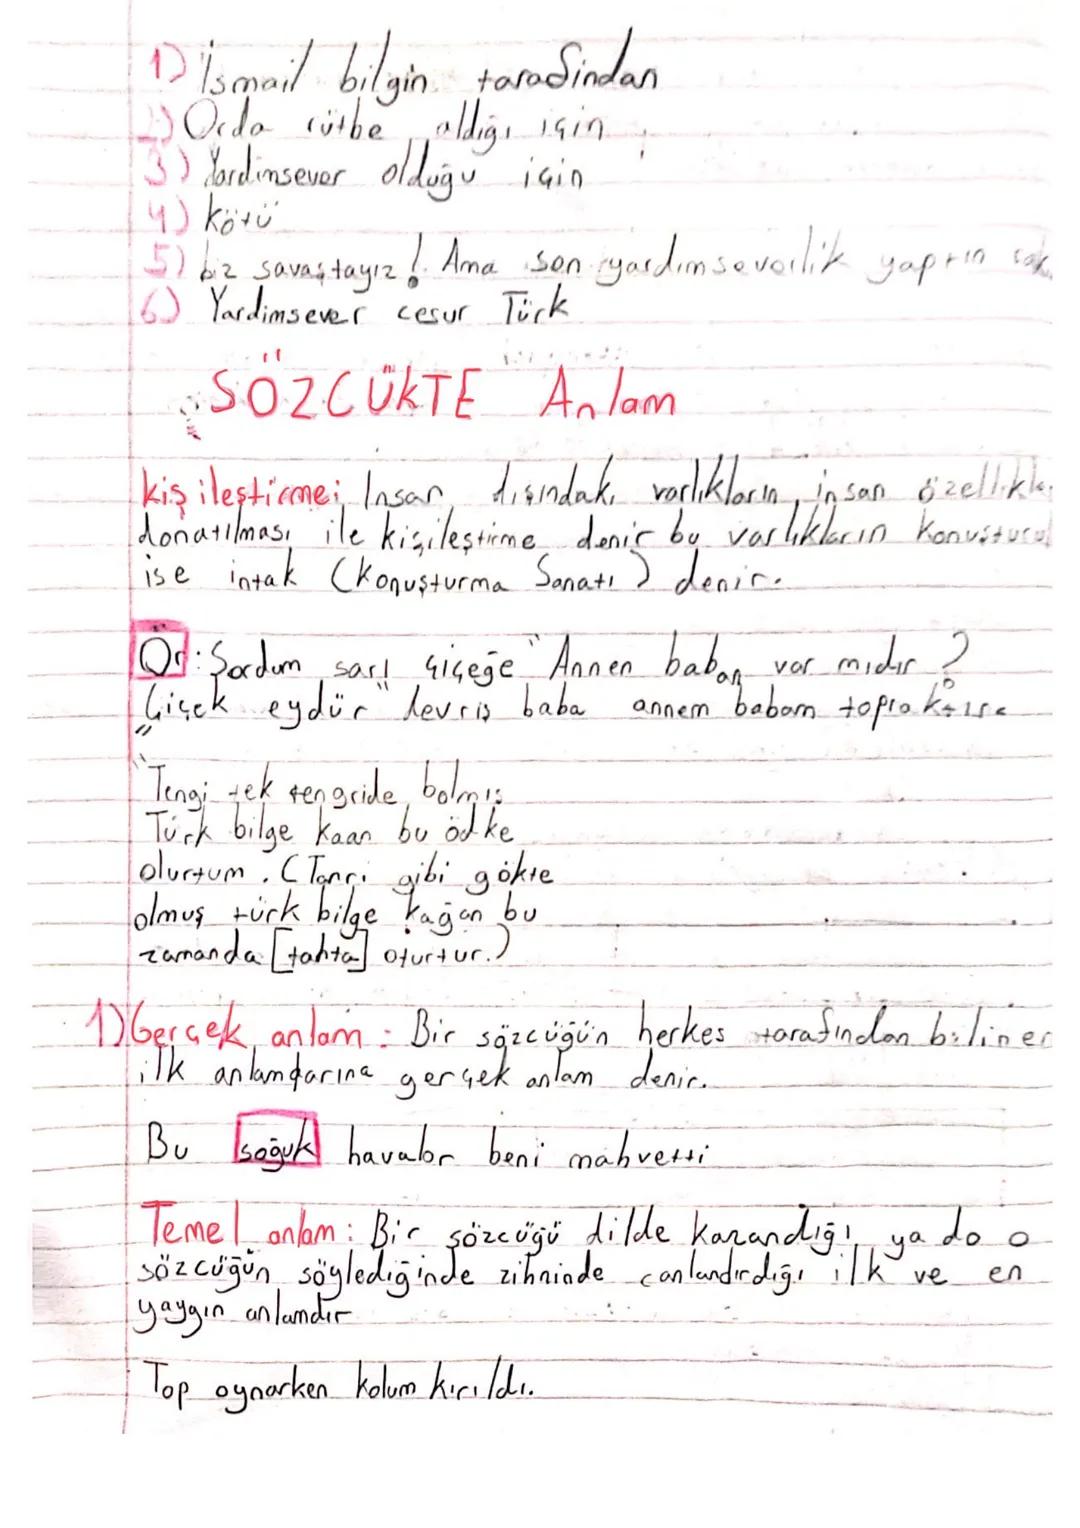 1) İsmail bilgin tarafından
2) Orda rütbe aldığı için
3) Yardımsever olduğu için
4) kötü
5) biz savaştayız! Ama sen yardımseverlik yaptın
6) Yardımsever cesur Türk
SÖZCÜKTE Anlam
kişileştirme; İnsan dışındaki varlıkların insan
donatılması ile kişileştirme denir bu varlıkların
ise intak (Konuşturma Sanatı) denir.
Ör: Sordum sarı çiçeğe "Annen baban var mıdır?
Çiçek eydür "devriş baba annem babam topraktır
"Tengi tek tengride bolmış
Türk bilge Kaan bu ödke
olurtum. (Tanrı gibi gökte
olmuş türk bilge Kağan bu
zamanda [tahta] oturtur.)
1) Gerçek anlam: Bir sözcüğün herkes tarafından bilinen
ilk anlamlarına gerçek anlam denir.
Bu soğuk havalar beni mahvetti
Temel anlam: Bir sözcüğü dilde kazandığı ya da o
sözcüğün söylediğinde zihninde canlandırdığı ilk ve en
yaygın anlamdır
Top oynarken kolum kırıldı.